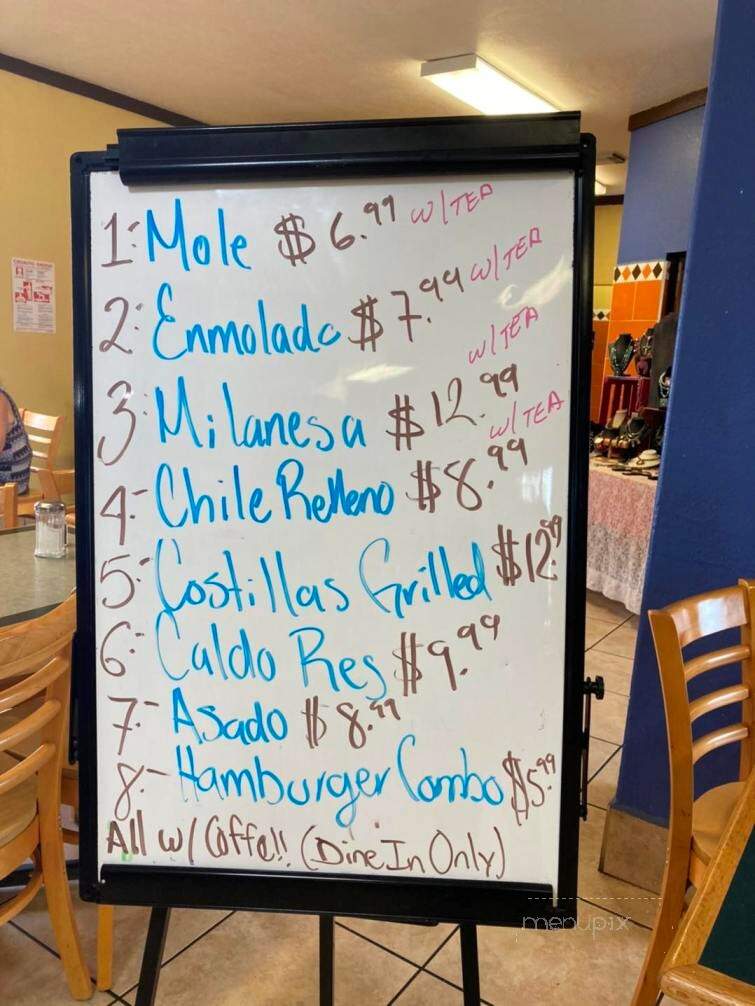 1: Mole $6.99 w/TEA
2: Enmolada $7.99 w/TEA
3: Milanesa $12.99 w/TEA
4- Chile Relleno $8.99 w/TEA
5- Costillas Grilled $12.99
6- Caldo Res $9.99
7- Asado $8.99
8- Hamburger Combo $5.99
All w/ Coffe!! (Dine In Only)
menupix